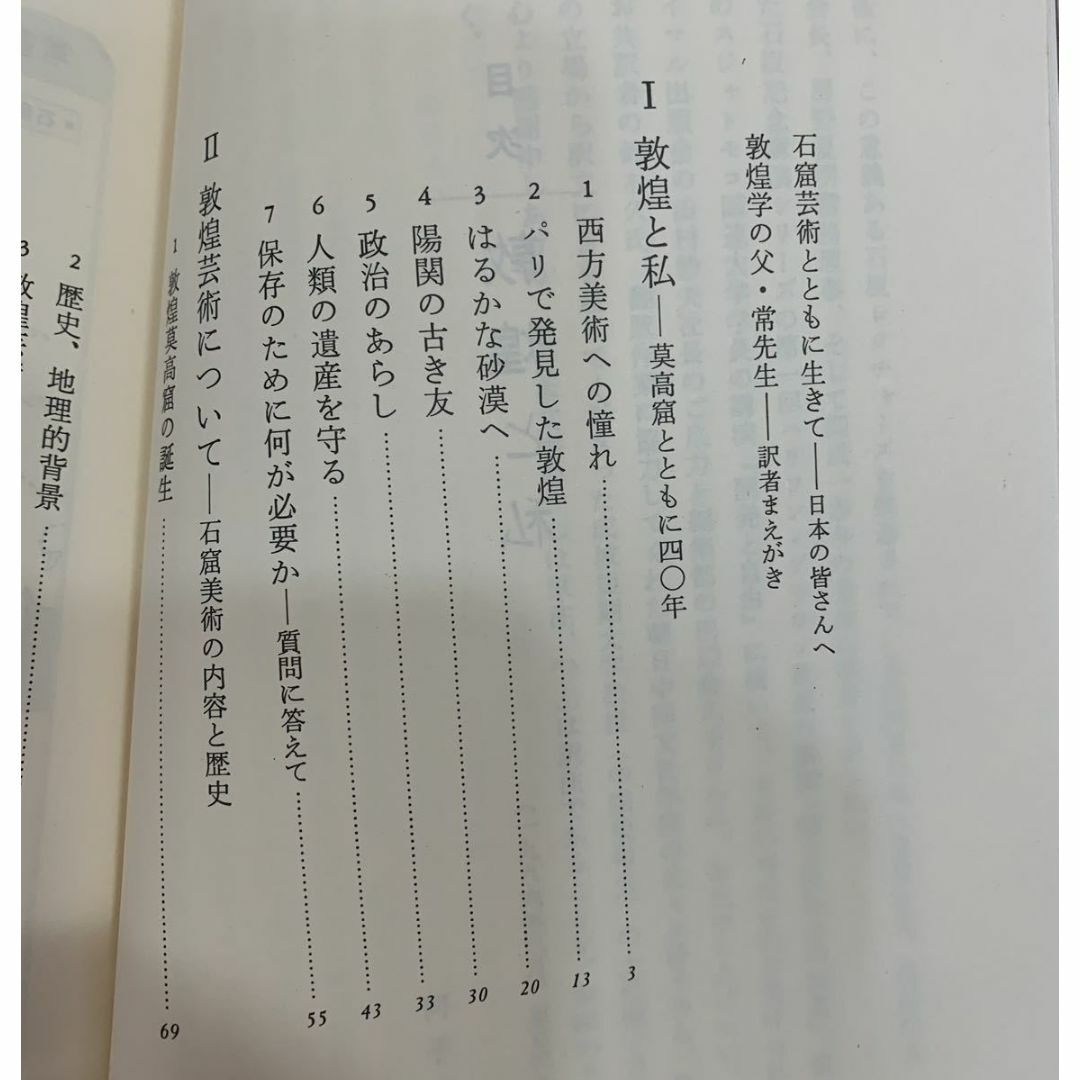 目次
石窟芸術とともに生きて――日本の皆さんへ
敦煌学の父・常先生――訳者まえがき
Ⅰ 敦煌と私――莫高窟とともに四〇年
1 西方美術への憧れ…………3
2 パリで発見した敦煌…………13
3 はるかな砂漠へ…………20
4 陽関の古き友…………30
5 政治のあらし…………33
6 人類の遺産を守る…………43
7 保存のために何が必要か――質問に答えて…………55
Ⅱ 敦煌芸術について――石窟美術の内容と歴史
1 敦煌莫高窟の誕生…………69
2 歴史、地理的背景…………
3 敦煌